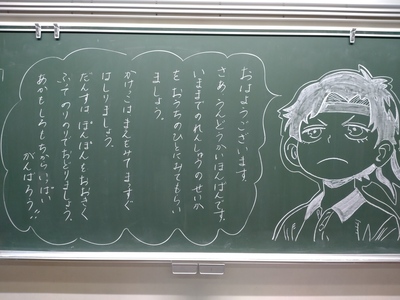 おはようございます。
さあ うんどうかいほんばんです。
いままでのれんしゅうのせいか
をおうちのひとにみてもらい
ましょう。
かけっこはまえをみてまっすぐ
はしりましょう。
だんすはぽんぽんをおおきく
ふって のりのりでおどりましょう。
あかもしろもちからいっぱい
がんばろう!!